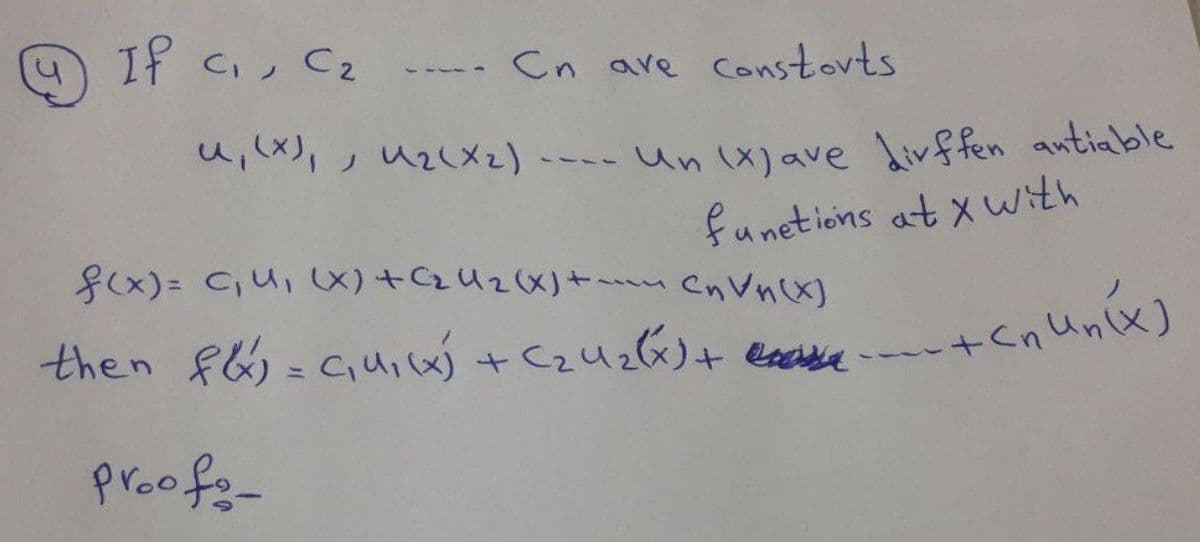 ④ If c₁, C₂ ----- Cn are constorts
u₁(x)₁, u₂(x₂) ---- Un (x) ave dirffen antiable
funetions at x with
f(x) = C₁U₁(x) + C₂U₂(x) + ---- CnVn(x)
then f(x)́ = C₁U₁(x)́ + C₂U₂(x)́ + ----- + CnUn(x)́
proof:-